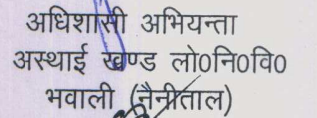 अधिशासी अभियन्ता
अस्थाई खण्ड लो0नि0वि0
भवाली (नैनीताल)